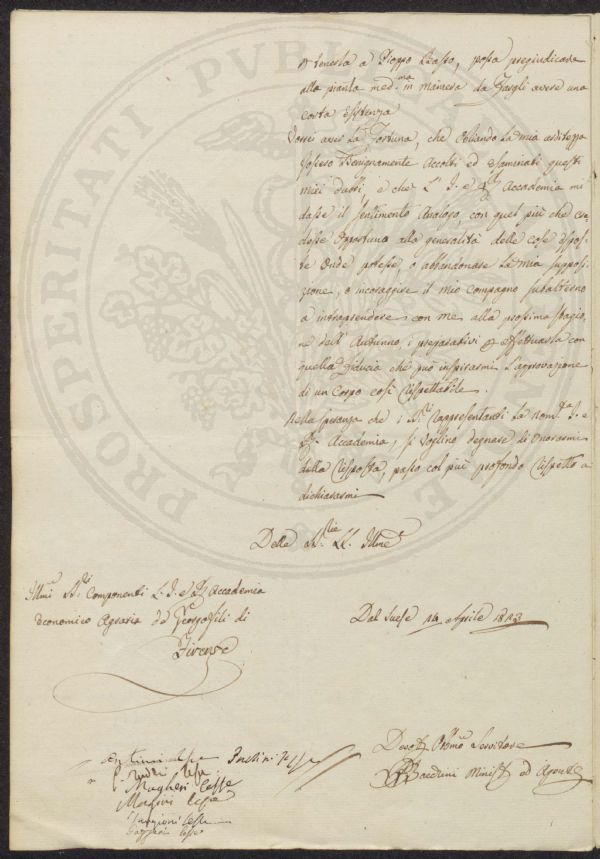 o tenerla a Pioppo basso, possa pregiudicare
alla pianta med.ma in maniera da fargli avere una
corta esistenza
Vorrei aver la Fortuna, che obliando la mia arditezza
fossero Benignamente Accolti ed esaminati questi
miei dubbi, e che L'I. e R. Accademia mi
dasse il sentimento Analogo, con quel più che cre
desse opportuno alla generalità delle cose espos
te onde potessi, o abbandonare la mia supposi
zione, o incoraggire il mio compagno subalterno
a intraprendere con me alla prossima stagio
ne dell' Autunno, i preparativi P effettuarla con
quella fiducia che può inspirarmi l'approvazione
di un Corpo così Rispettabile.
Nella speranza che i SS.ri rappresentanti la nom.ta I. e
R. Accademia, si voglino degnare di onorarmi
della Risposta, passo col più profondo Rispetto a
dichiararmi
Delle SS.rie LL. Illme
Illmi SS.ri Componenti L. I. e R. Accademia
Economico Agraria dei Georgofili di
Firenze
Dal Suese 14 Aprile 1823
Devot. Obbmo Servitore
Bacciini Minist. ed Agente
Magheri lesse
PROSPERITATI PUBLICAE